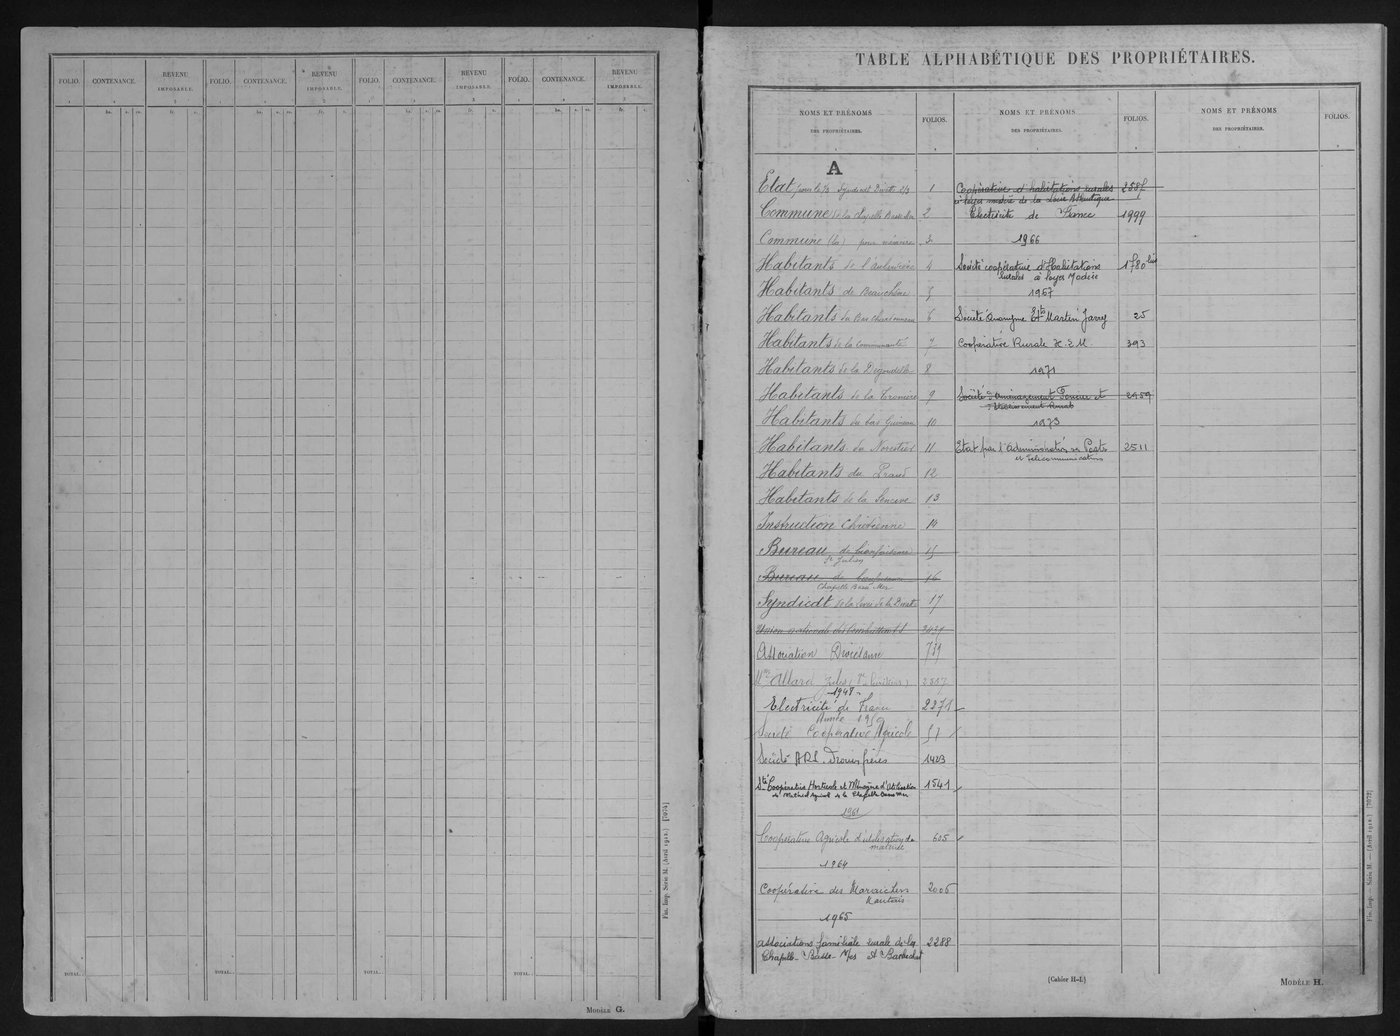 FOLIO. CONTENANCE. REVENU IMPOSABLE. FOLIO. CONTENANCE. REVENU IMPOSABLE. FOLIO. CONTENANCE. REVENU IMPOSABLE. FOLIO. CONTENANCE. REVENU IMPOSABLE.
TOTAL. TOTAL. TOTAL. TOTAL.
Fin. Imp. Série M. (Avril 1912.) [7074]
MODÈLE G.
TABLE ALPHABÉTIQUE DES PROPRIÉTAIRES.
NOMS ET PRÉNOMS DES PROPRIÉTAIRES. FOLIOS. NOMS ET PRÉNOMS DES PROPRIÉTAIRES. FOLIOS. NOMS ET PRÉNOMS DES PROPRIÉTAIRES. FOLIOS.
A
Etat 1
Commune de la Chapelle Basse Mer 2
Commune (la) pour mémoire 3
Habitants de 4
Habitants de Beauchêne 5
Habitants du Bas Chardonneau 6
Habitants de la Communauté 7
Habitants de la 8
Habitants de la 9
Habitants du bas Guineau 10
Habitants du 11
Habitants du Praud 12
Habitants de la 13
Instruction Chrétienne 14
Bureau de bienfaisance 15
St Julien
Bureau de bienfaisance 16
Chapelle Basse Mer
Syndicat de la levée de la Divatte 17
Union nationale des Combattants 2437
Association Diocésaine 739
Allard Jules 2567
1948
Electricité de France 2271
Année 1950
Société Coopérative Agricole 57
Société ARL. Drouin frères 1423
Sté Coopérative Horticole et d'Utilisation 1541
de Matériel agricol de la Chapelle Basse Mer
1961
Coopérative Agricole d'utilisation de 605
matériel
1964
Coopérative des Maraichers 2006
Nantais
1965
Associations familiale rurale de la 2288
Chapelle-Basse-Mer et Barbechat
Coopérative d'habitations rurales 2587
à loyer modéré de la Loire Atlantique
Electricité de France 1999
1966
Société coopérative d'Habitations 1780 bis
rurales à loyer Modéré
1967
Société Anonyme Ets Martin Jarry 25
Coopérative Rurale H.L.M. 393
1971
Société d'Aménagement Foncier et 2459
d'Etablissement Rural
1973
Etat par l'Administration des Postes 2511
et Télécommunications
Fin. Imp. — Série M. — (Avril 1912.) [7072]
[Cahier H-I.]
MODÈLE H.